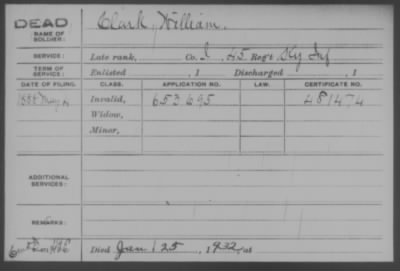 DEAD
NAME OF SOLDIER:
Clark, William.
SERVICE:
Late rank, Co. I, 45 Reg't Ky Inf
TERM OF SERVICE:
Enlisted , 1 Discharged , 1
DATE OF FILING. CLASS. APPLICATION NO. LAW. CERTIFICATE NO.
1888 May Invalid, 653695 481474
Widow,
Minor,
ADDITIONAL SERVICES:
REMARKS:
Died Jan 25, 1932, at